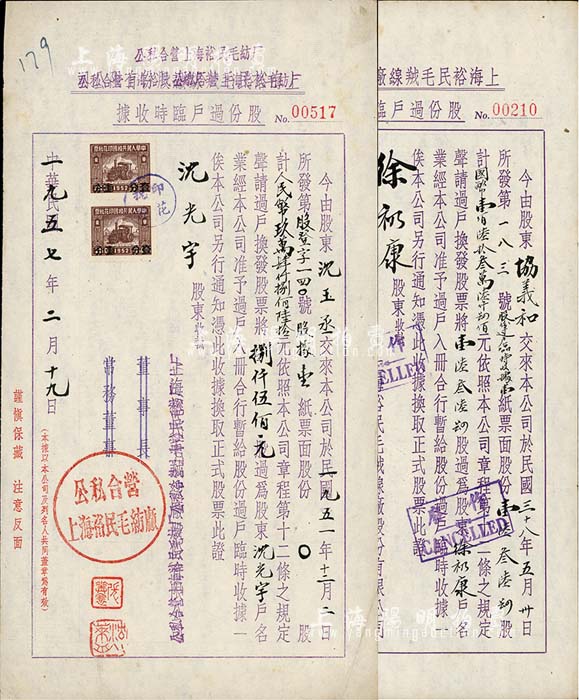 179
公私合營上海裕民毛紡廠
股份過戶臨時收據
No. 00517
今由股東 沈玉丞 交來本公司於民國 一九五一年十二月二日
所發第 股登字一四〇 號股據 壹 紙票面股份 〇 股
計人民幣玖萬肆仟捌佰陸拾元依照本公司章程第十二條之規定
聲請過戶換發股票將 捌仟伍佰元 過爲股東 沈光宇 戶名
業經本公司准予過戶入冊合行暫給股份過戶臨時收據一
俟本公司另行通知憑此收據換取正式股票此證
沈光宇 股東收執
董事長
常務董事
中華民
一九五七年二月十九日
(本據以本公司及列名人共同蓋章爲有效)
謹愼保藏 注意反面
公私合營
上海裕民毛紡廠
1952
1952
印花
上海裕民毛羢線廠
股份過戶臨
No. 00210
今由股東 協義和 交來本公司於民國 三十八年五月卅日
所發第 一八三 號
紙票面股份 壹陸叁陸捌 股
元依照本公司章程第十二條之規定
聲請過戶換發股票將 壹陸叁陸捌 股過爲股東 徐礽康 戶名
業經本公司准予過戶入冊合行暫給股份過戶臨時收據一
俟本公司另行通知憑此收據換取正式股票此證
徐礽康 股東收
CANCELLED
上海裕民毛羢線廠股份有限公司
上海陽明拍賣
www.yangmingauction.com